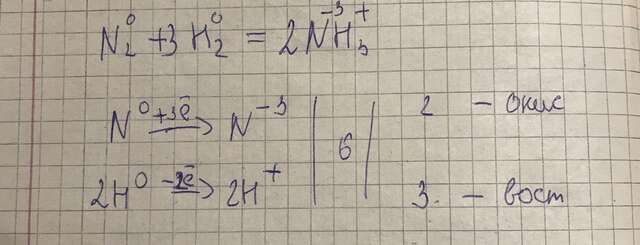 N₂⁰ + 3 H₂⁰ = 2 N⁻³H₃⁺
N⁰ +3ē → N⁻³ | 6 | 2 – окис
2H⁰ –2ē → 2H⁺ | 3. – вост